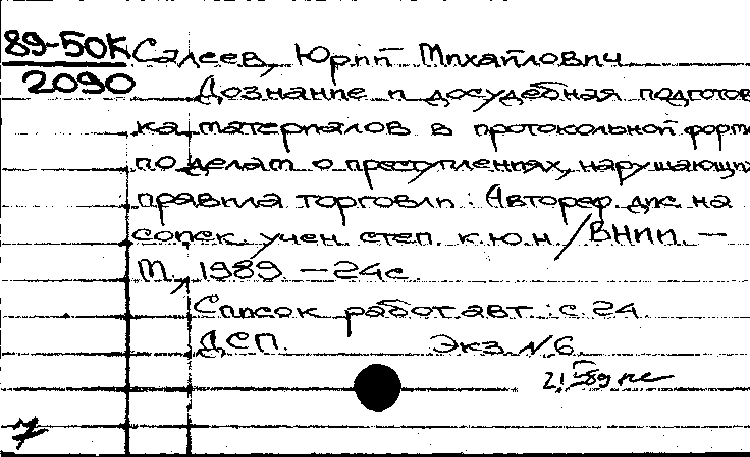 89-50К Салеев, Юрий Михайлович
2090
Дознание и досудебная подготов
ка материалов в протокольной форме
по делам о преступлениях, нарушающих
правила торговли : Автореф. дис. на
соиск. учен. степ. к.ю.н / ВНИИ. —
М., 1989. — 24с.
Список работ авт.: с. 24.
ДСП. Экз. N 6.
7